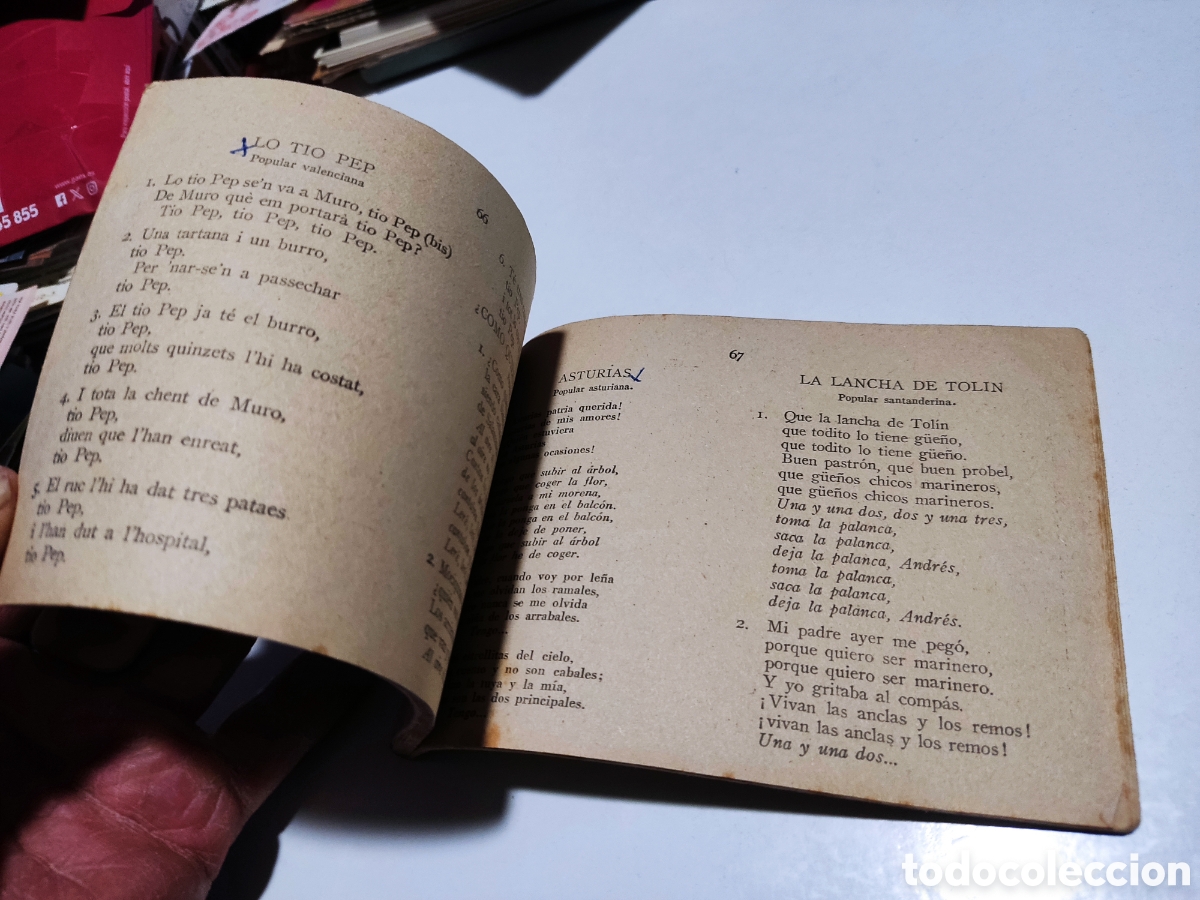 55 855
LO TIO PEP
Popular valenciana
66
1. Lo tio Pep se'n va a Muro, tio Pep (bis)
De Muro què em portarà tio Pep?
Tio Pep, tio Pep, tio Pep.
2. Una tartana i un burro,
tio Pep.
Per 'nar-se'n a passechar
tio Pep.
3. El tio Pep ja té el burro,
tio Pep,
que molts quinzets l'hi ha costat,
tio Pep.
4. I tota la chent de Muro,
tio Pep,
diuen que l'han enreat,
tio Pep.
5. El ruc l'hi ha dat tres pataes
tio Pep,
i l'han dut a l'hospital,
tio Pep.
6.
¿COMO
1.
2.
67
ASTURIAS
Popular asturiana.
patria querida!
mis amores!
ocasiones!
subir al árbol,
coger la flor,
mi morena,
en el balcón.
en el balcón,
de poner,
subir al árbol
de coger.
voy por leña
los ramales,
se me olvida
los arrabales.
del cielo,
y no son cabales;
y la mía,
las dos principales.
LA LANCHA DE TOLIN
Popular santanderina.
1. Que la lancha de Tolín
que todito lo tiene güeño,
que todito lo tiene güeño.
Buen pastrón, que buen probel,
que güeños chicos marineros,
que güeños chicos marineros.
Una y una dos, dos y una tres,
toma la palanca,
saca la palanca,
deja la palanca, Andrés,
toma la palanca,
saca la palanca,
deja la palanca, Andrés.
2. Mi padre ayer me pegó,
porque quiero ser marinero,
porque quiero ser marinero.
Y yo gritaba al compás.
¡Vivan las anclas y los remos!
¡vivan las anclas y los remos!
Una y una dos...
todocoleccion